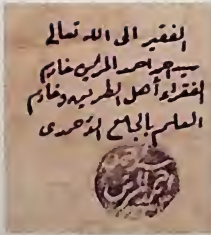 الفقير الى الله تعالى
سيد احمد المرسى خادم
الفقراء أهل الطريق وخادم
العلم بالجامع الاحمدى